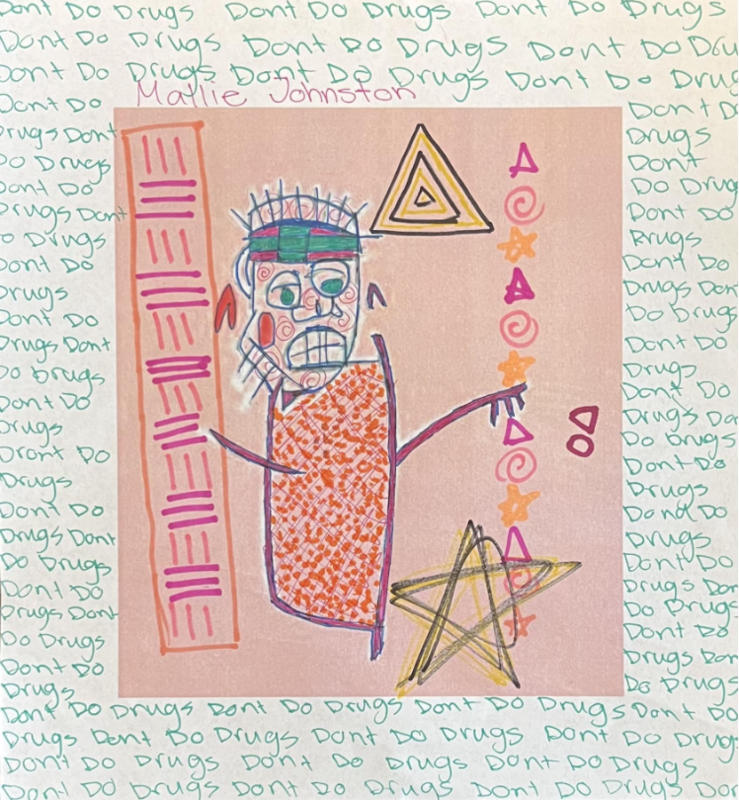 Dont Do Drugs Dont Do Drugs Dont Do Drugs
Do Drugs Dont Do Drugs Dont Do Dru
Dont Do Drugs Dont Do Drugs Dont Do Drug
Mallie Johnston
Dont Do
Drugs Dont
Do Drugs
Dont Do
Drugs Dont
Do Drugs
Dont Do
Drugs
Dont Do
Drugs Dont
Do Drugs
Dont Do
Drugs
Dront Do
Drugs
Dont Do
Drugs Dont
Do Drugs
Dont Do
Drugs Dont
Do Drugs
Dont Do
Drugs
Dont D
Drugs
Dont
Do Drug
Dont Do
Rrugs
Dont Do
Drugs Don
Do Drugs
Dont Do
Drugs
Dont Do
Drugs Don
Do Drugs
Dont Do
Drugs
Dond Do
Drugs
Dont Do
Drugs Don
Do Drugs
Dont Do
Drugs Don
Do Drugs
Dont Do Drugs Dont Do Drugs Dont Do Drugs Dont Do
Drugs Dont Do Drugs Dont Do Drugs Dont Do Drug
Dont Do Drugs Dont Do Drugs Dont Do Drugs
Dont Do Drugs Dont Do Drugs Dont Do Drugs Don